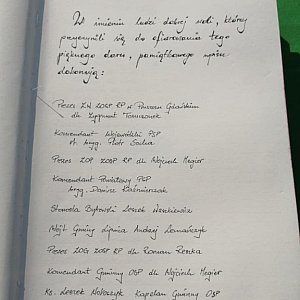 W imieniu ludzi dobrej woli, którzy
przyczynili się do ofiarowania tego
pięknego daru, pamiątkowego wpisu
dokonają:
Prezes ZW ZOSP RP w Pruszczu Gdańskim
dh Zygmunt Tomczonek
Komendant Wojewódzki PSP
st. bryg. Piotr Socha
Prezes ZOP ZOSP RP dh Wojciech Megier
Komendant Powiatowy PSP
bryg. Dariusz Kaźmierczak
Starosta Bytowski Leszek Waszkiewicz
Wójt Gminy Lipnica Andrzej Lemańczyk
Prezes ZOG ZOSP RP dh Roman Reszka
Komendant Gminny OSP dh Wojciech Megier
Ks. Leszek Kapelan Gminny OSP